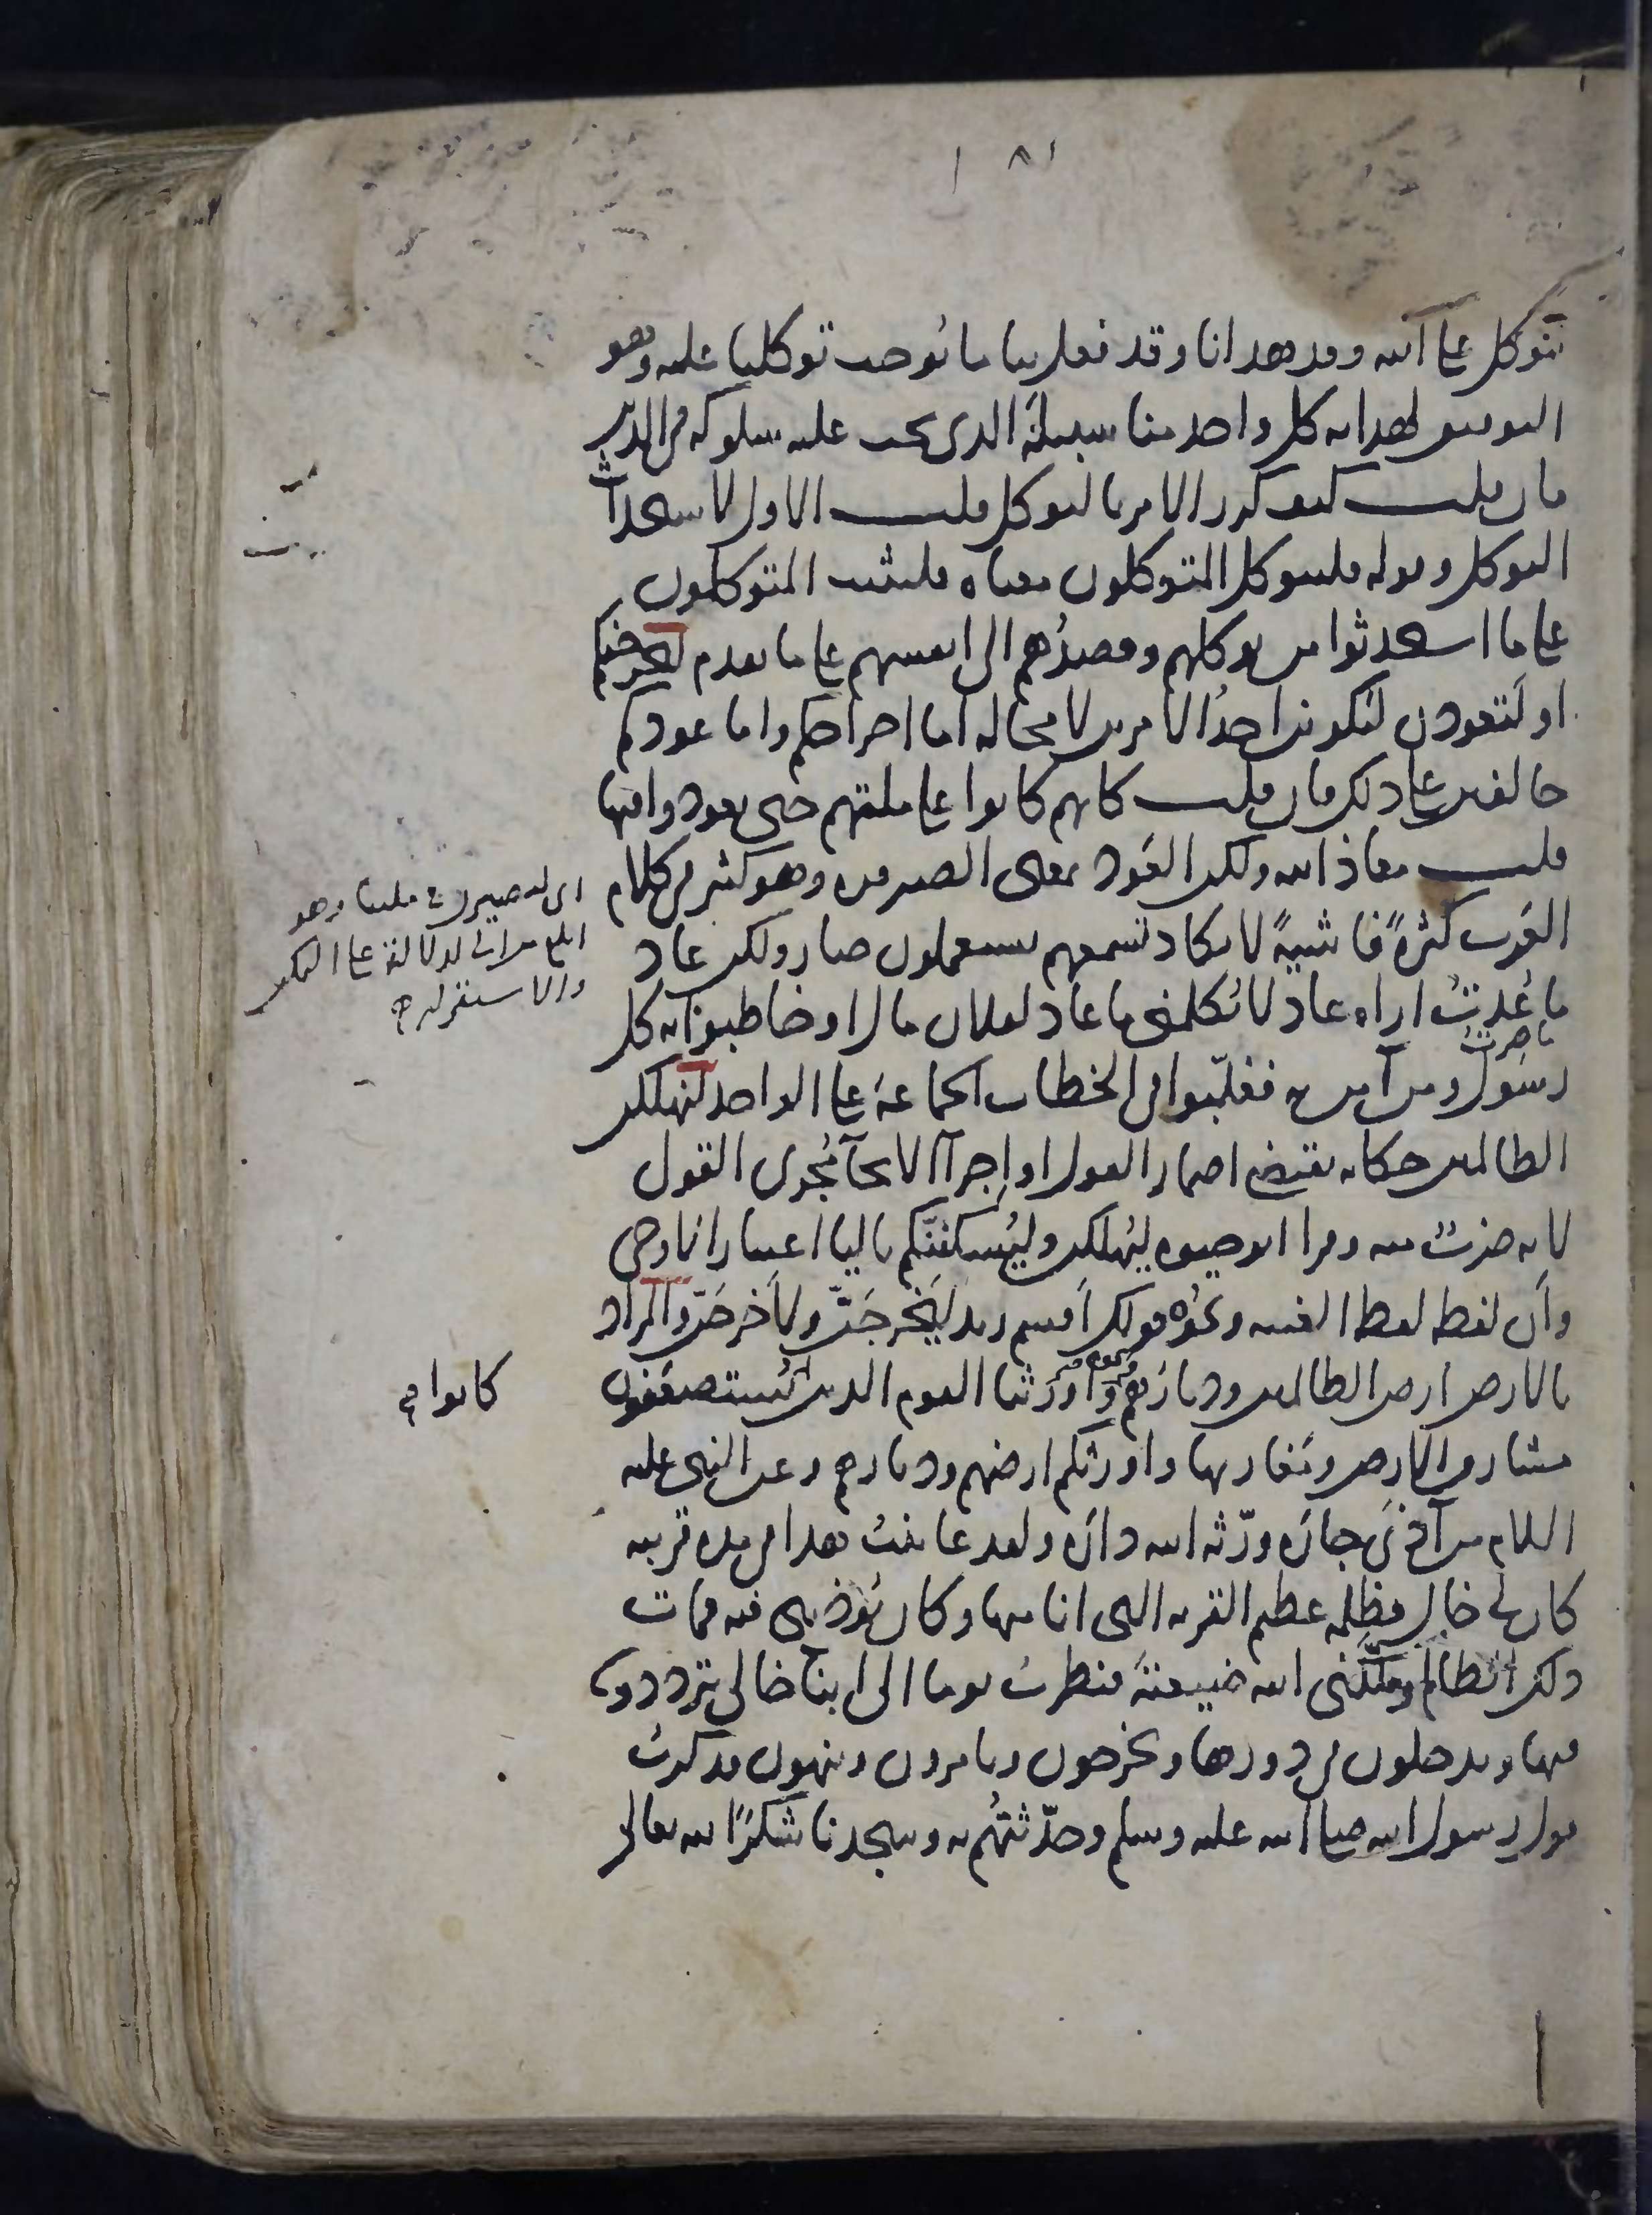 ١٨١
نتوكل على الله وقد هدانا وقد فعل بنا ما يوجب توكلنا عليه وهو
التوفيق لهداية كل واحد منا سبيله الذي يجب عليه سلوكه في الدين
فان قلت كيف كرر الامر بالتوكل قلت الاول لاستحداث
التوكل وقوله فليتوكل المتوكلون معناه فليثبت المتوكلون
على ما استحدثوا من توكلهم وقصدهم الى انفسهم على ما تقدم لنخرجنكم
او لتعودن ليكونن احد الامرين لا محالة اما اخراجكم واما عودكم
حالفين على ذلك فان قلت كانهم كانوا على ملتهم حتى يعودوا فيها
قلت معاذ الله ولكن العود بمعنى الصيرورة وهو كثير في كلام
العرب كثرةً فاشيةً لا تكاد تسمعهم يستعملون صار ولكن عاد
ما عدتُ اراه عاد لا يكلمني ما عاد لفلان مال او خاطبوا به كل
ما صرت
رسول ومن آمن به فغلّبوا في الخطاب الجماعة على الواحد لنهلكن
الظالمين حكاية تقتضي اضمار القول او اجرآ الايحآ مجرى القول
لانه ضرب منه وقرا ابو حيوة ليُهلكن وليُسكننّكم باليا اعتبارا لاوحى
وأن لفظه لفظ الغيبة ونحوه قولك أقسم زيد ليخرجَنّ ولأخرجَنّ والمراد
بالارض ارض الظالمين وديارهم ونحوه وأورثنا القوم الذين يُستضعفون
مشارق الارض ومغاربها واورثكم ارضهم وديارهم وعن النبي عليه
السلام من آذى جاره ورّثه الله داره ولقد عاينتُ هذا في مدة قريبة
كان لي خال يظلمه عظيم القرية التي انا منها وكان يؤذيني فيه فمات
ذلك الظالم وملّكني الله ضيعته فنظرت يوما الى ابناء خالي يترددون
فيها ويدخلون في دورها ويخرجون ويامرون وينهون فذكرتُ
قول رسول الله صلى الله عليه وسلم وحدّثتُهم به وسجدنا شكرًا لله تعالى
اي لتصيرن في ملتنا وهو
ابلغ من الى لدلالته على التمكن
والاستقرار صح
كانوا صح